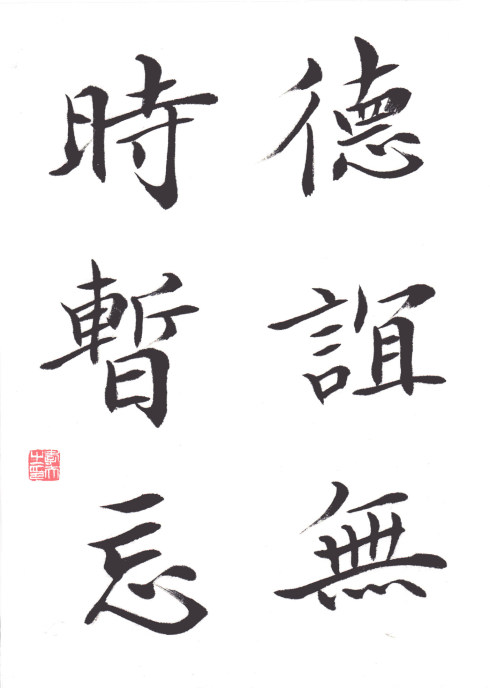 德誼無
時暫忘